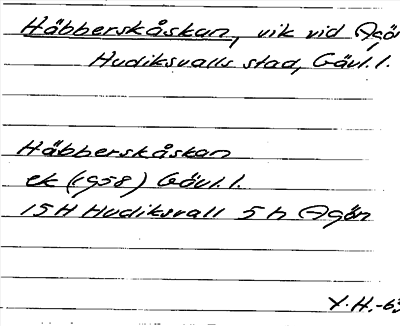 Häbberskåskan, vik vid Agön
Hudiksvalls stad, Gävl. l.
Häbberskåskan
ek (1958) Gävl. l.
15H Hudiksvall 5 h Agön
Y. H. -63